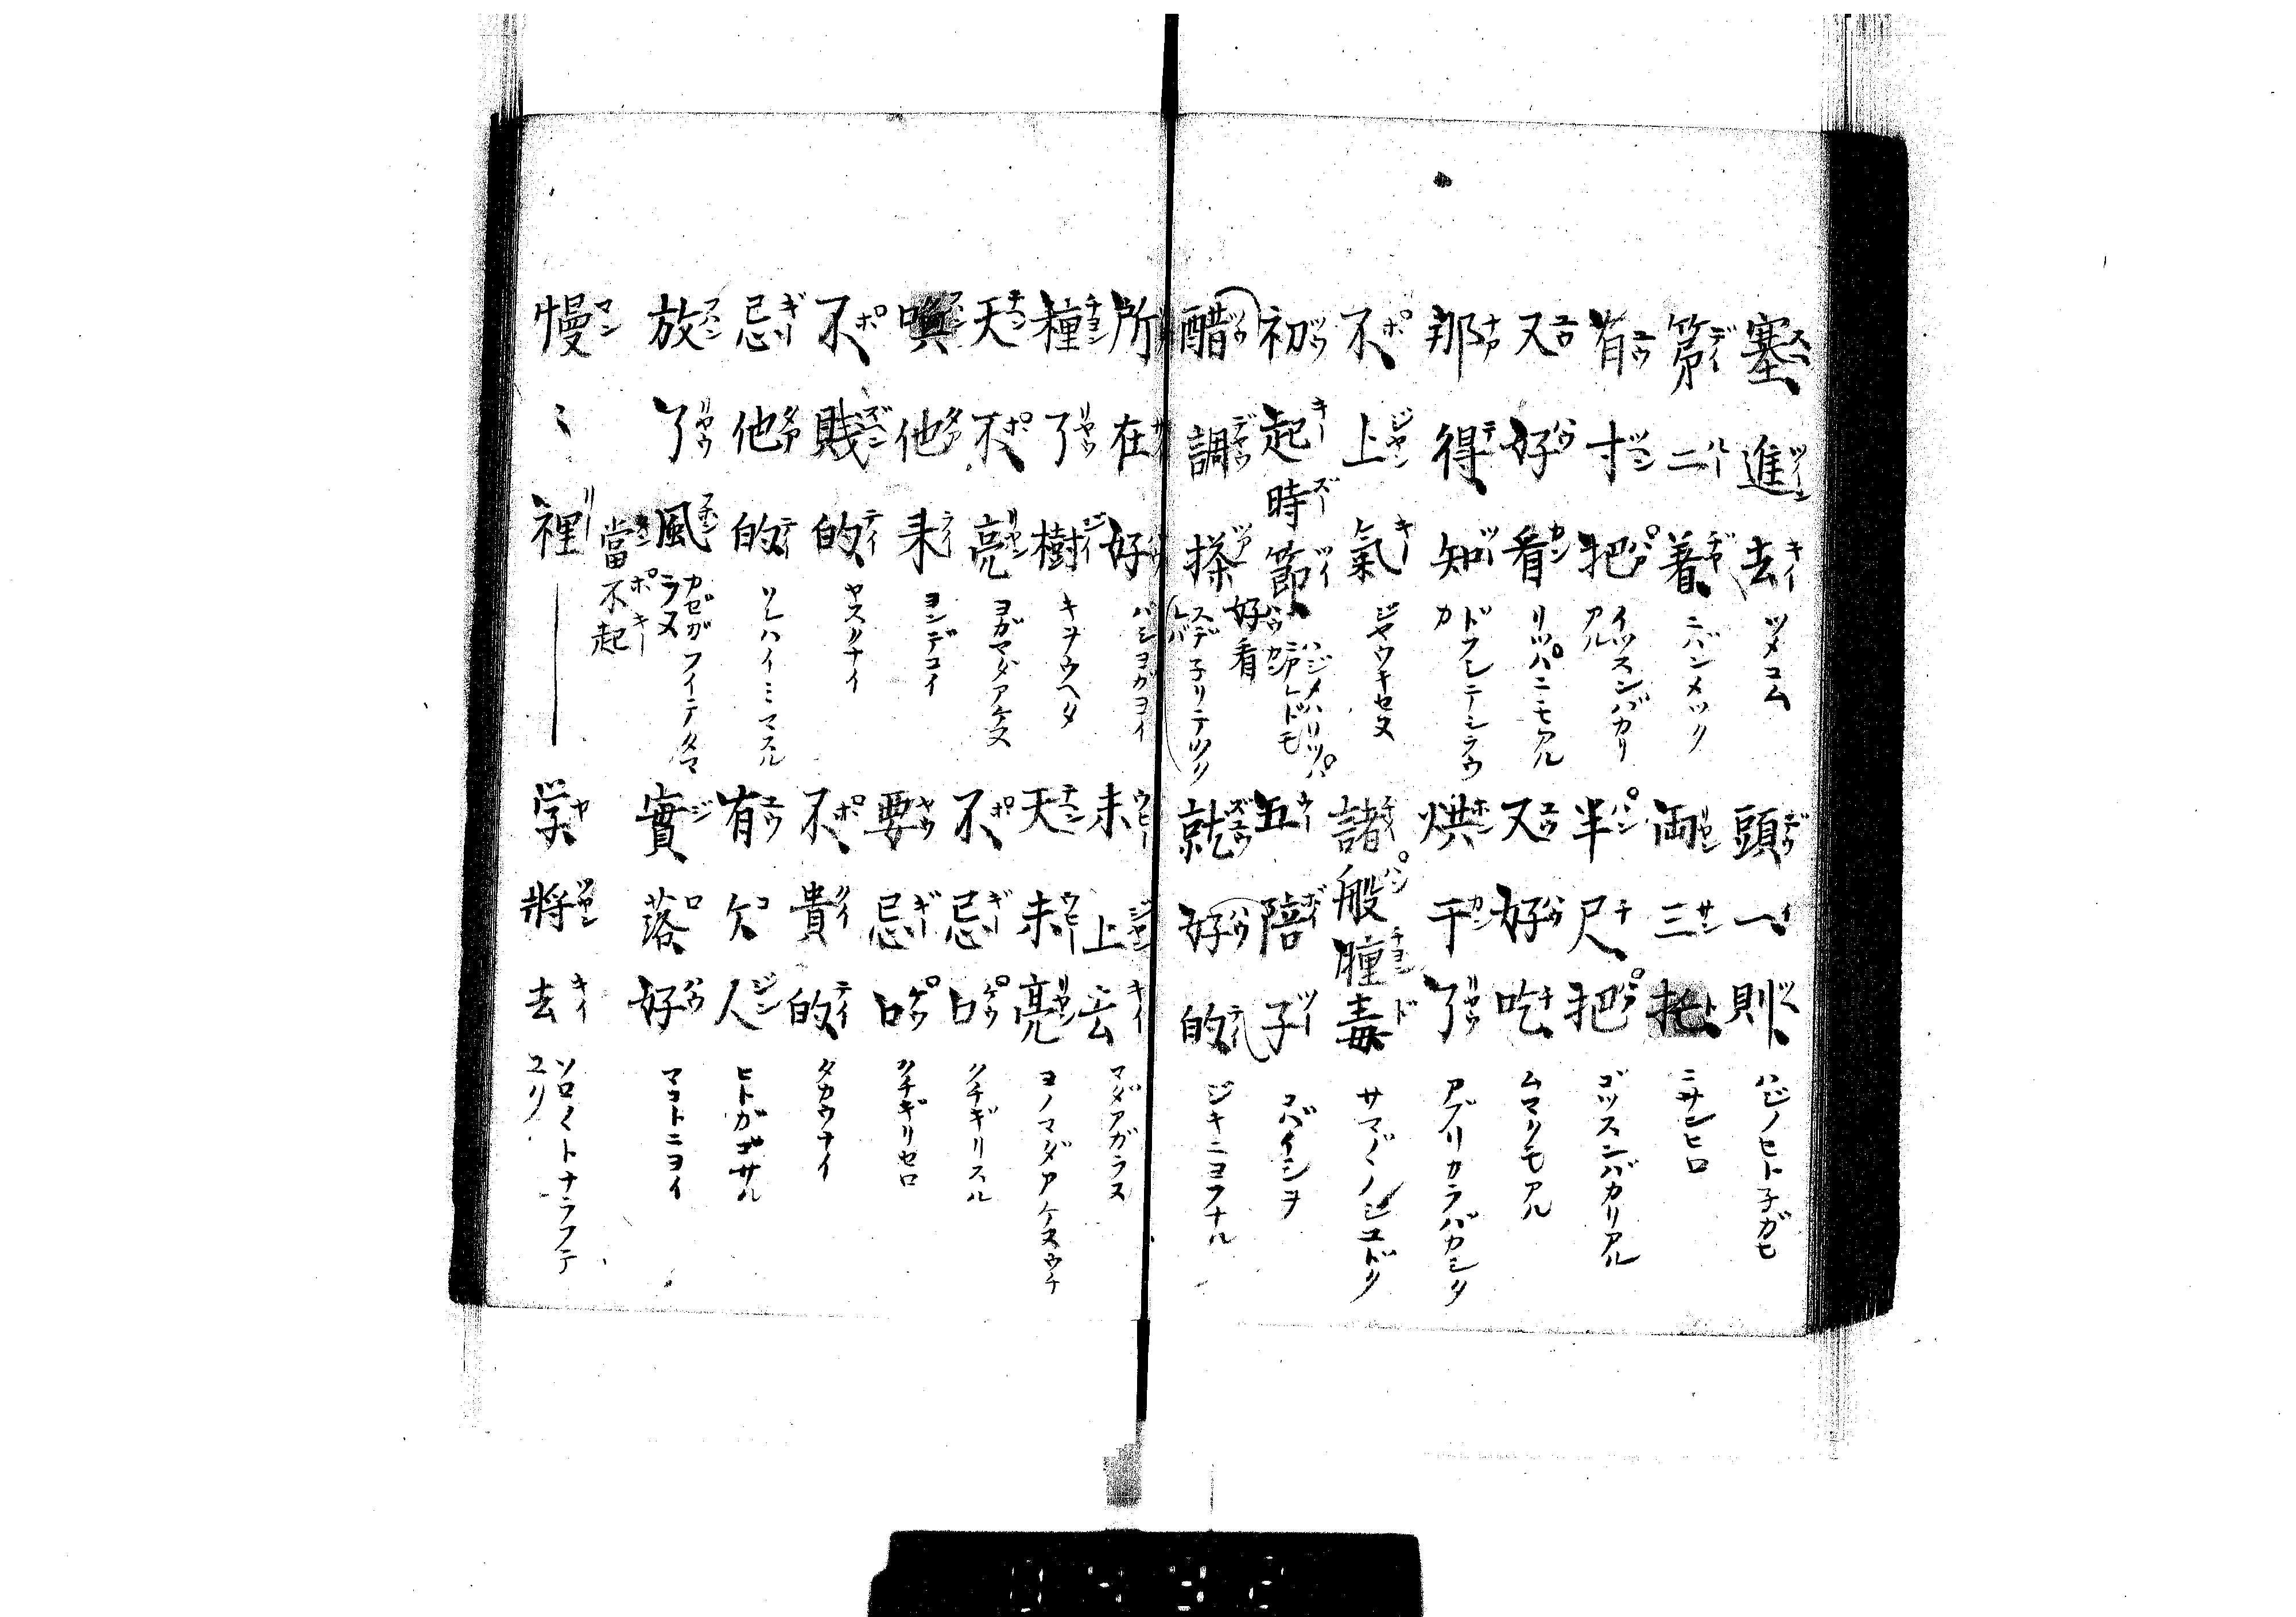 塞進去 ツメコム 頭一則 ハジノヒト子ガヒ
第二着 ニバンメツク 両三托 ニサンヒロ
有寸把 イツスンバカリアル 半尺把 ゴツスンバカリアル
又好看 リツパニモアル 又好吃 ムマクモアル
那得知 ドフシテシラウカ 烘干了 アブリカラバカシタ
不上氣 ジヤウキセヌ 諸般腫毒 サマ〲ノシユドク
初起時節好看 ハジメハリツパニアレドモ 五陪子 ゴバイシヲ
醋調搽 スデ子リテツクレバ 就好的 ジキニヨフナル
所在好 バシヨガヨイ 未上去 マダアガラヌ
種了樹 キヲウヘタ 天未亮 ヨノマダアケヌウチ
天不亮 ヨガマダアケヌ 不忌口 クチギリスル
喚他来 ヨンデコイ 要忌口 クチギリセロ
不賎的 ヤスクナイ 不貴的 タカウナイ
忌他的 ソレハイミマスル 有欠人 ヒトガゴサル
放了風 カゼガフイテタマラヌ 實落好 マコトニヨイ
當不起
慢〻裡 学將去 ソロ〱トナラフテユク